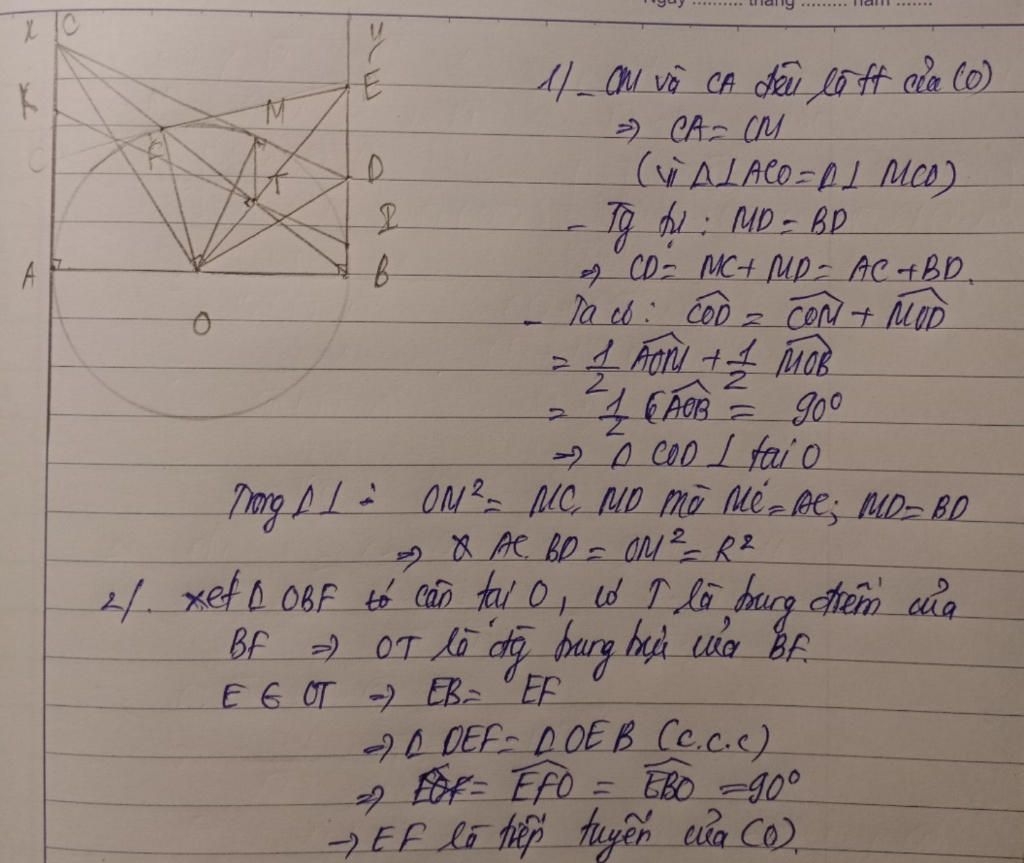 Ngày .......... tháng ......... năm .......
x C
y
K
E
M
F
D
T
I
A
B
O
1/ _ CM và CA đều là tt của (O)
=> CA = CM
(vì Δ⊥ACO = Δ⊥ MCO)
- Tg tự : MD = BD
=> CD = MC + MD = AC + BD.
- Ta có : COD = COM + MOD
= 1/2 AOM + 1/2 MOB
= 1/2 AOB = 90°
=> Δ COD ⊥ tại O
Trong Δ⊥ : OM² = MC. MD mà MC = AC; MD = BD
=> AC. BD = OM² = R²
2/. xét Δ OBF cân tại O, có T là trung điểm của
BF => OT là đg trung trực của BF.
E ∈ OT => EB = EF
=> Δ OEF = Δ OEB (c.c.c)
=> EFO = EBO = 90°
-> EF là tiếp tuyến của (O).